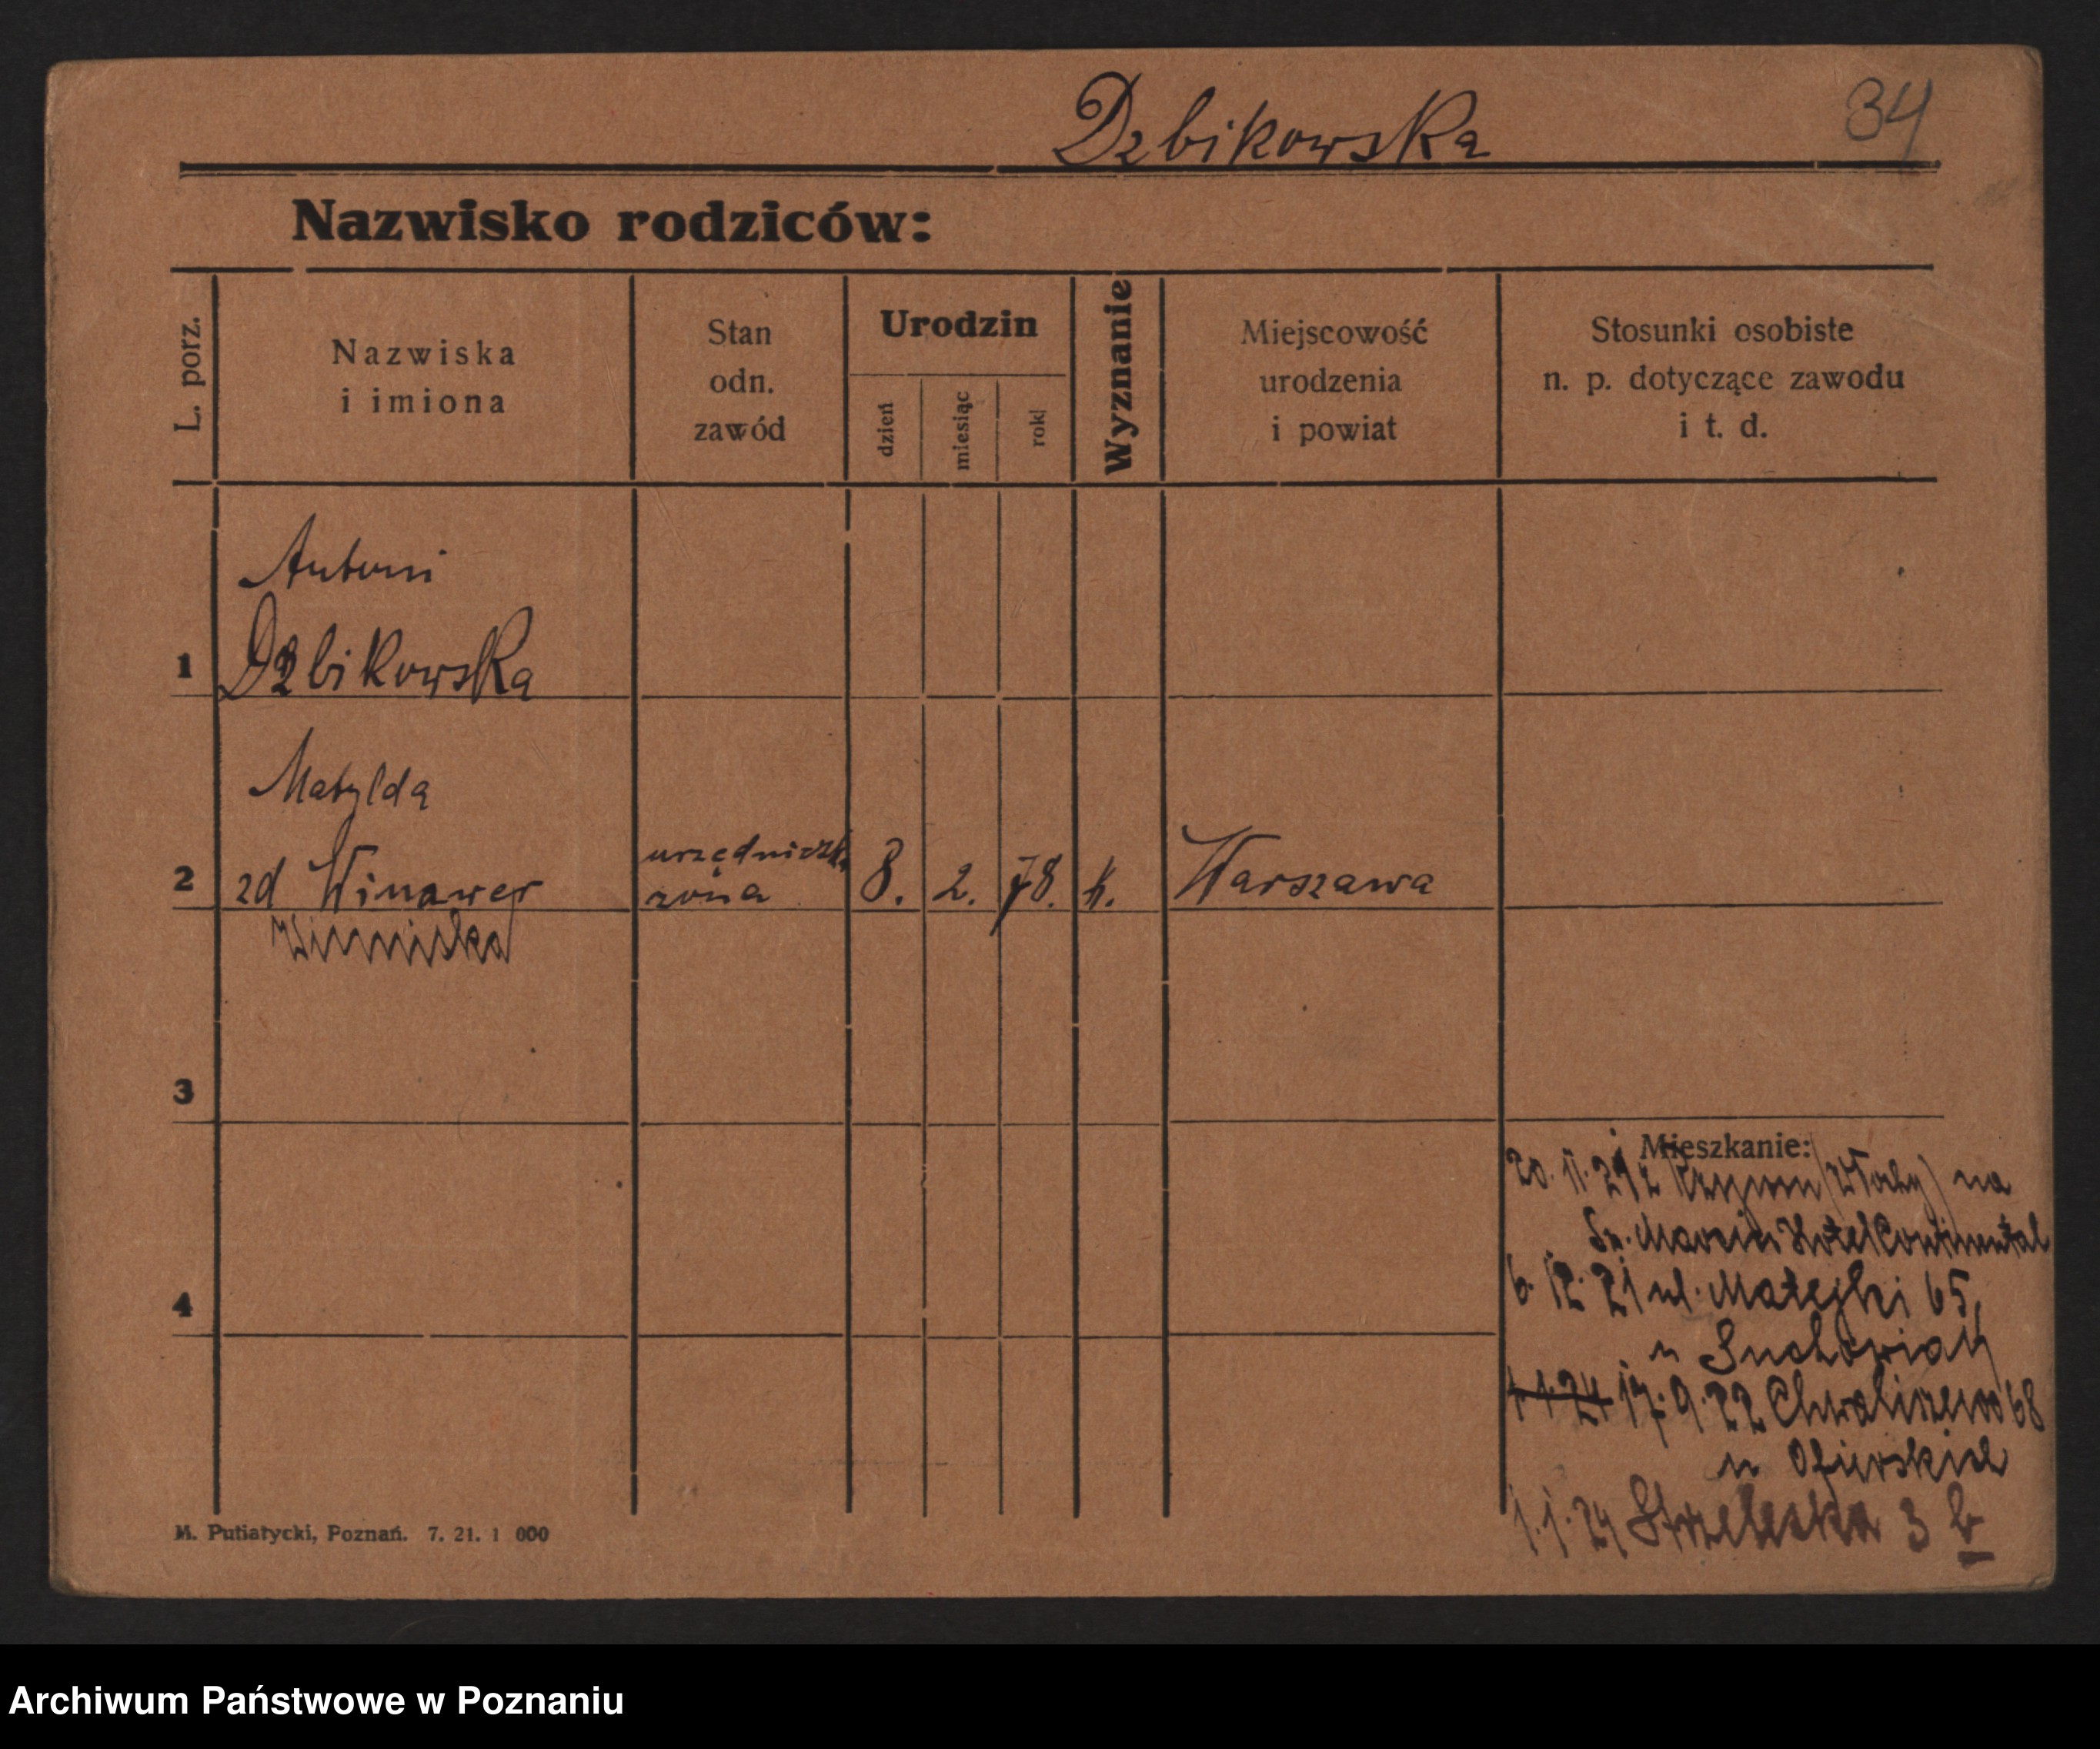 Dzbikowska
34
Nazwisko rodziców:
L. porz.
Nazwiska
i imiona
Stan
odn.
zawód
Urodzin
dzień
miesiąc
rok
Wyznanie
Miejscowość
urodzenia
i powiat
Stosunki osobiste
n. p. dotyczące zawodu
i t. d.
Antoni
1 Dzbikowska
Matylda
urzędniczka
2 zd Winawer żona 8. 2. 78. k. Warszawa
3
4
Mieszkanie:
20. 11. 21 z Rzymu (Włochy) na
Św. Marcin Hotel Continental
6. 12. 21 ul. Matejki 65,
u
1.1.24 17. 9. 22 Chwaliszewo 68
u
1. 1. 24 Strzelecka 3 b
M. Putiatycki, Poznań. 7. 21. 1 000
Archiwum Państwowe w Poznaniu